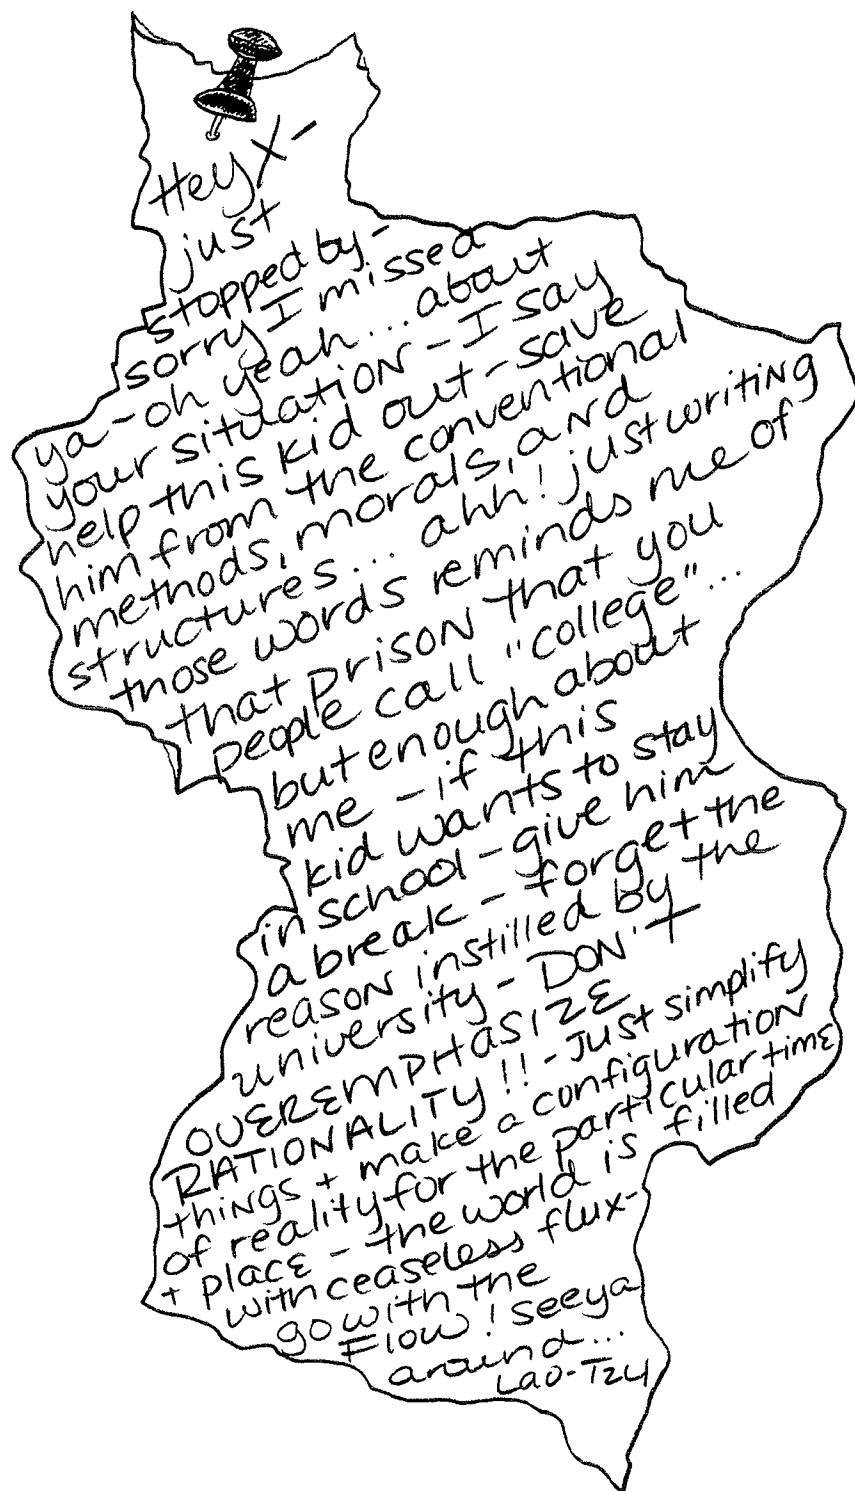 Hey X-
just
stopped by-
sorry I missed
ya-oh yeah...about
your situation - I say
help this kid out-save
him from the conventional
methods, morals, and
structures... ahh! just writing
those words reminds me of
that prison that you
people call "college"...
but enough about
me - if this
kid wants to stay
in school-give him
a break - forget the
reason instilled by the
university - DON'T
OVEREMPHASIZE
RATIONALITY!! - Just simplify
things + make a configuration
of reality for the particular time
+ place - the world is filled
with ceaseless flux-
go with the
Flow! seeya
around...
Lao-Tzu